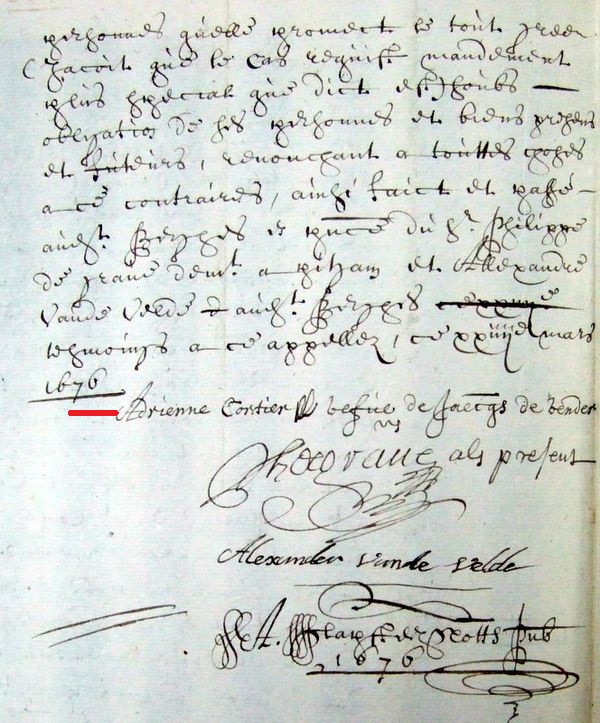 personnes quelle promect le tout greer
Jacoit que le cas requist mandement
plus special que dict est soubs
obligation de ses personnes et biens presens
et futeurs, renonchant a touttes choses
a ce contraires, ainsi faict et passé
audt. Berghes es pnce du Sr. Philippe
de grave demt. a pitgam et Allexandre
Vande Velde d audt. Berghes
tesmoings a ce appellez, ce xxiiije mars
1676
Adrienne Cortier vefue de Jaecqs de bender
als present
Alexander vande velde
Not. Pub
1676